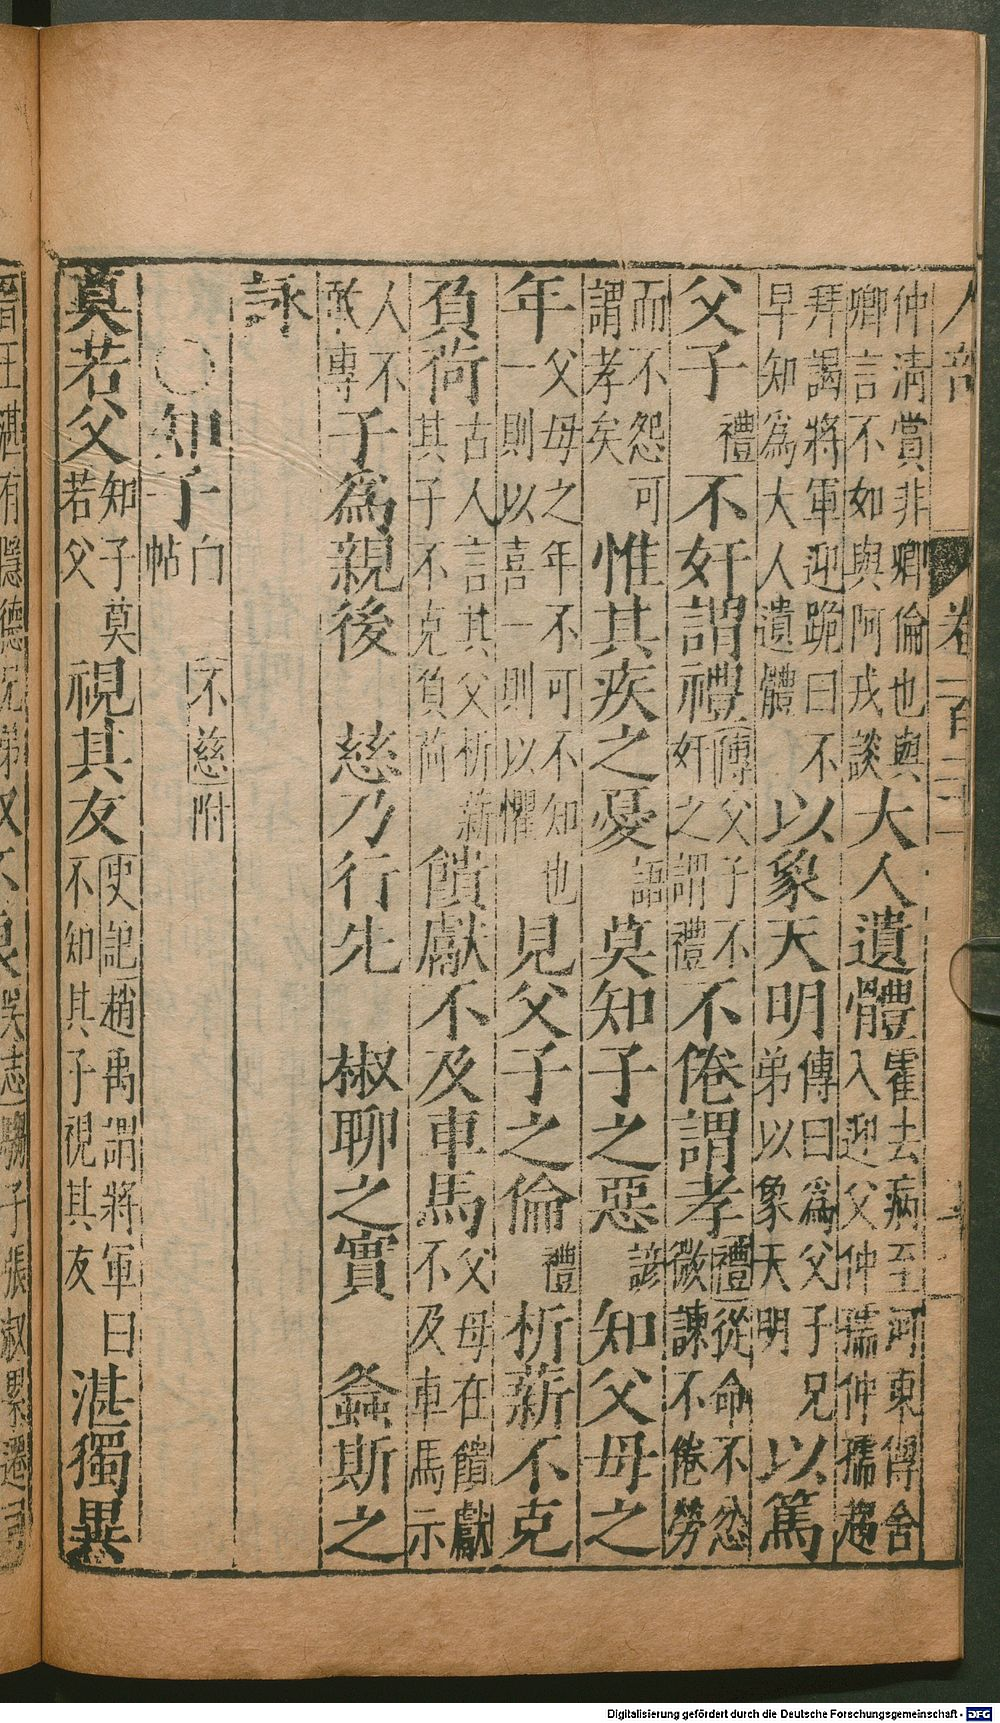 人部 卷一百二十
仲清賞非卿倫也與卿言不如與阿戎談大人遺體霍去病至河東傳舍入迎父仲孺仲孺趨
拜謁將軍迎跪曰不早知為大人遺體以象天明傳曰為父子兄弟以象天明以篤
父子禮不奸謂禮傳父子不奸之謂禮不倦謂孝禮從命不忿微諫不倦勞
而不怨可謂孝矣惟其疾之憂語莫知子之惡諺知父母之
年父母之年不可不知也一則以喜一則以懼見父子之倫禮析薪不克
負荷古人言其父析薪其子不克負荷饋獻不及車馬父母在饋獻不及車馬示
人不敢專子為親後 慈乃行先 椒聊之實 螽斯之
詠
○知子白帖不慈附
莫若父知子莫若父視其友史記趙禹謂將軍曰不知其子視其友湛獨異
晉王湛有隱德兄弟
Digitalisierung gefördert durch die Deutsche Forschungsgemeinschaft - DFG